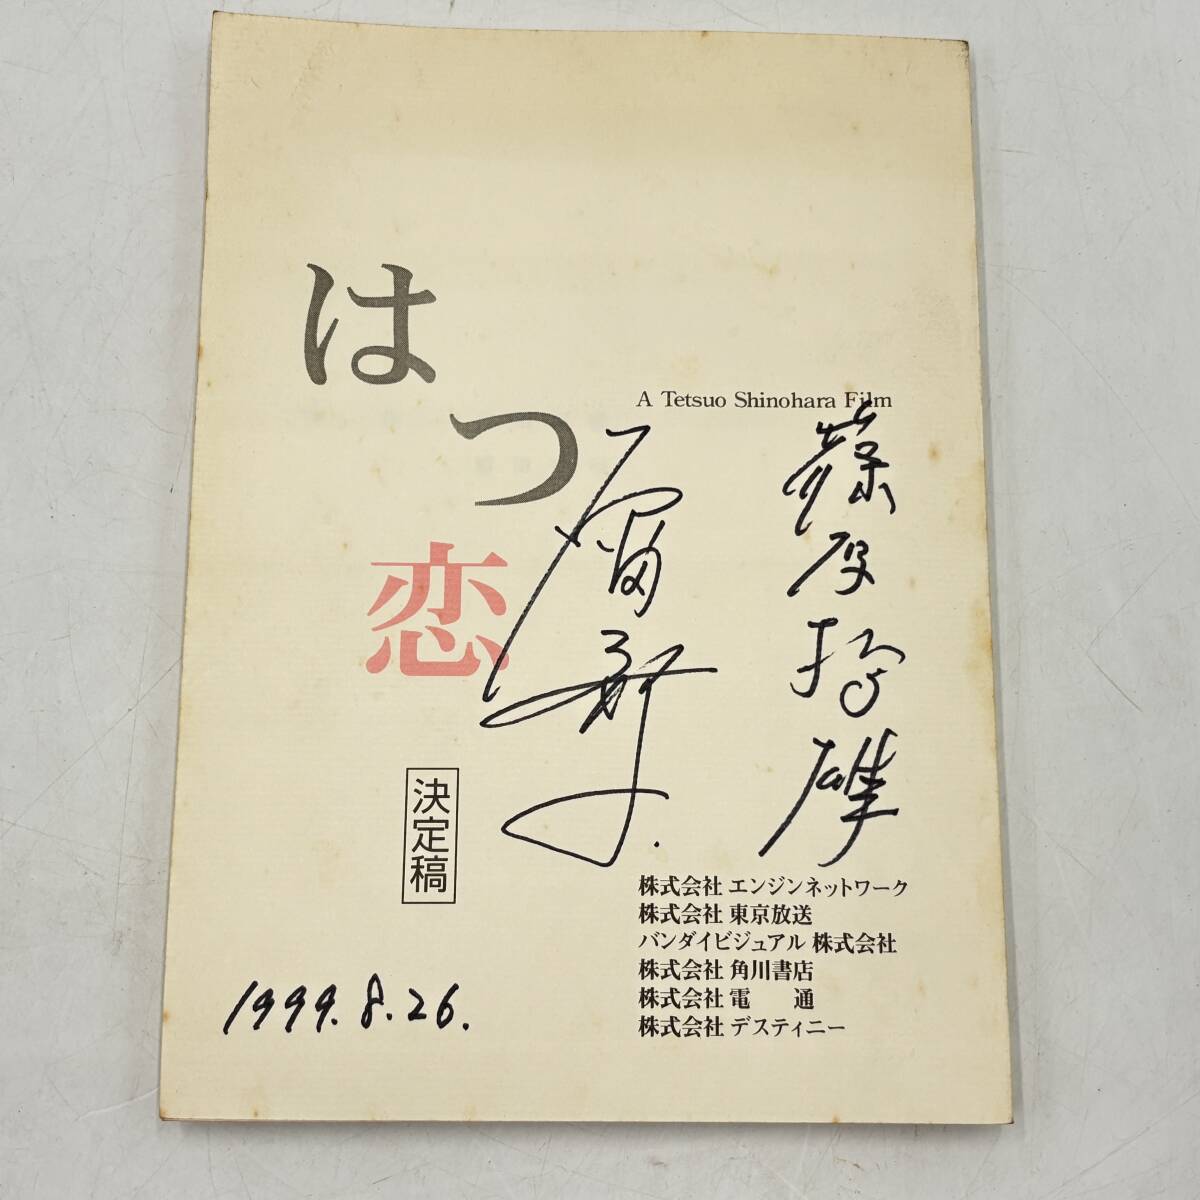 はつ恋
A Tetsuo Shinohara Film
決定稿
株式会社 エンジンネットワーク
株式会社 東京放送
バンダイビジュアル 株式会社
株式会社 角川書店
株式会社 電　通
株式会社 デスティニー
1999.8.26.